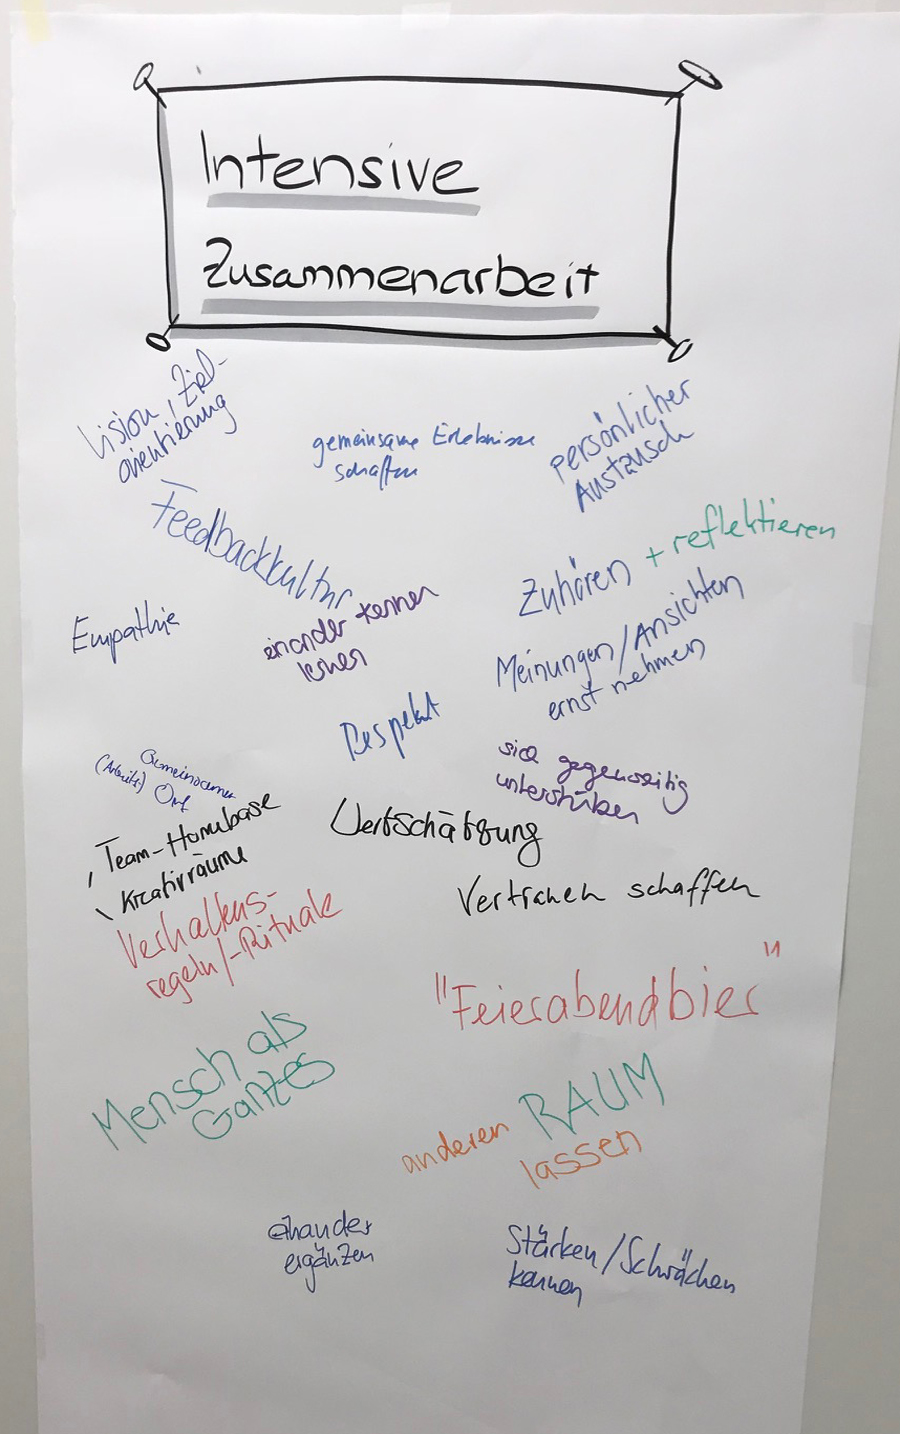 Intensive
Zusammenarbeit
Vision, Ziel-
orientierung
gemeinsame Erlebnisse
schaffen
persönlicher
Austausch
Feedbackkultur
Zuhören + reflektieren
Empathie
einander kennen
lernen
Meinungen/Ansichten
ernst nehmen
Respekt
Gemeinsamer
(Arbeits) Ort
sich gegenseitig
unterstützen
, Team-Homebase
\ Kreativräume
Wertschätzung
Vertrauen schaffen
Verhaltens-
regeln/-Rituale
"Feierabendbier"
Mensch als
Ganzes
anderen RAUM
lassen
einander
ergänzen
Stärken/Schwächen
kennen